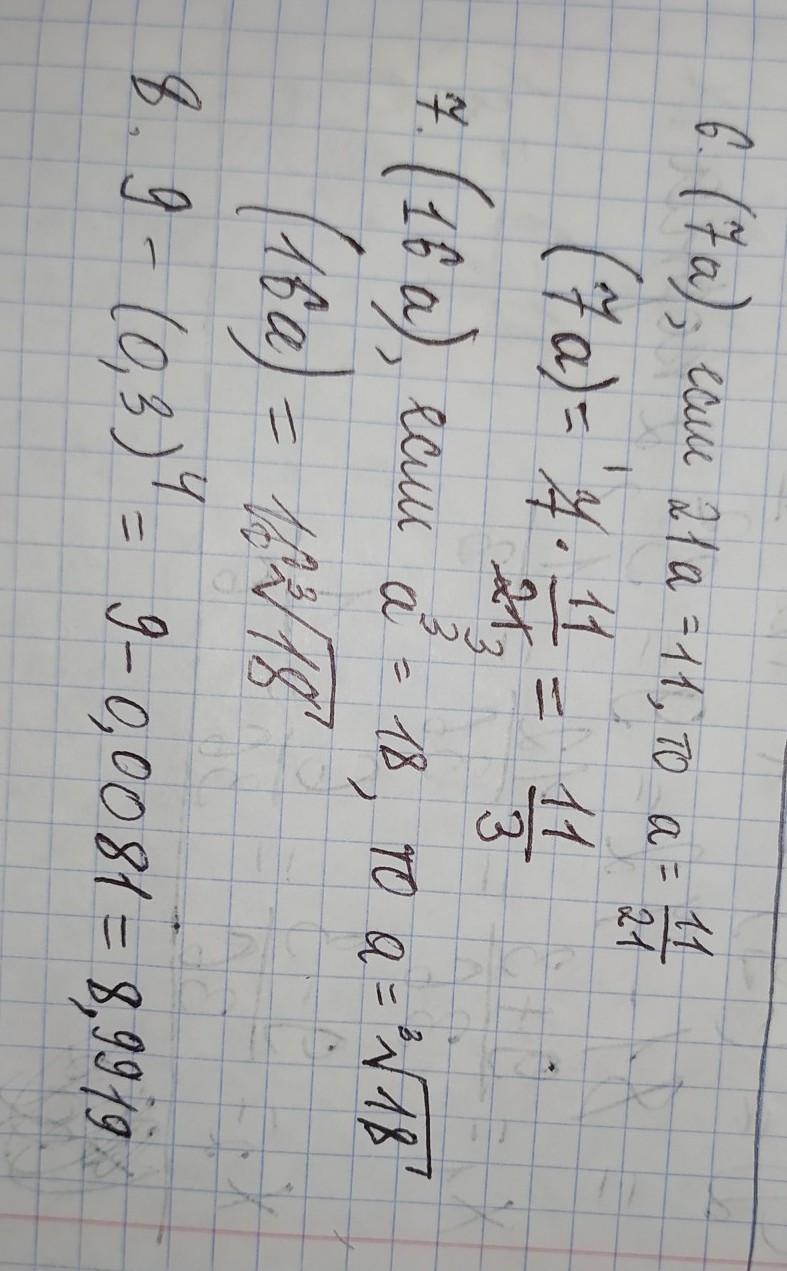 6. (7a), если 21a = 11, то a = 11/21
(7a) = 7¹ · 11/21₃ = 11/3
7. (16a), если a³ = 18, то a = ³√18
(16a) = 16³√18
8. 9 - (0,3)⁴ = 9 - 0,0081 = 8,9919